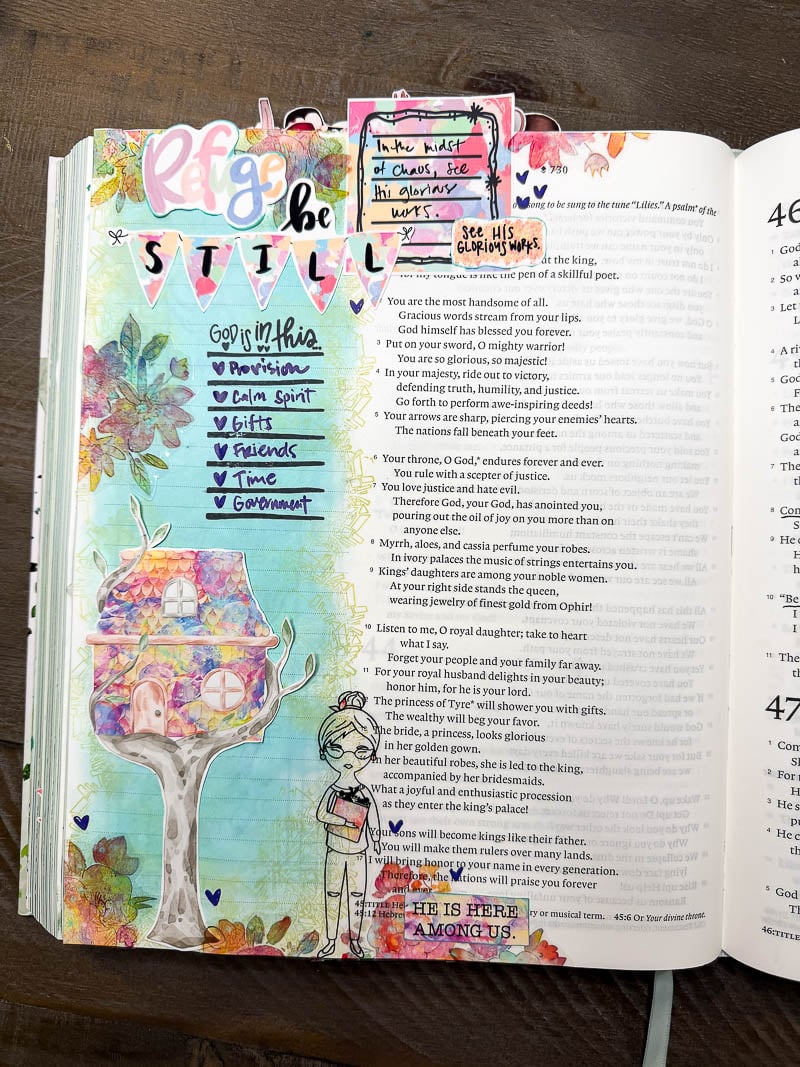 Refuge
be
STILL
In the midst
of chaos, see
His glorious
works.
SEE HIS
GLORIOUS WORKS.
God is in this...
Provision
Calm Spirit
Gifts
Friends
Time
Government
730
song to be sung to the tune “Lilies.” A psalm* of the
at the king,
for my tongue is like the pen of a skillful poet.
You are the most handsome of all.
Gracious words stream from your lips.
God himself has blessed you forever.
3 Put on your sword, O mighty warrior!
You are so glorious, so majestic!
4 In your majesty, ride out to victory,
defending truth, humility, and justice.
Go forth to perform awe-inspiring deeds!
5 Your arrows are sharp, piercing your enemies’ hearts.
The nations fall beneath your feet.
6 Your throne, O God,* endures forever and ever.
You rule with a scepter of justice.
7 You love justice and hate evil.
Therefore God, your God, has anointed you,
pouring out the oil of joy on you more than on
anyone else.
8 Myrrh, aloes, and cassia perfume your robes.
In ivory palaces the music of strings entertains you.
9 Kings’ daughters are among your noble women.
At your right side stands the queen,
wearing jewelry of finest gold from Ophir!
10 Listen to me, O royal daughter; take to heart
what I say.
Forget your people and your family far away.
11 For your royal husband delights in your beauty;
honor him, for he is your lord.
The princess of Tyre* will shower you with gifts.
The wealthy will beg your favor.
The bride, a princess, looks glorious
in her golden gown.
In her beautiful robes, she is led to the king,
accompanied by her bridesmaids.
What a joyful and enthusiastic procession
as they enter the king’s palace!
Your sons will become kings like their father.
You will make them rulers over many lands.
17 I will bring honor to your name in every generation.
Therefore, the nations will praise you forever
and ever.
45:TITLE He
ry or musical term. 45:6 Or Your divine throne.
45:12 Hebrew
HE IS HERE
AMONG US.
46
1 God
2 So w
3 Let
4 A ri
5 God
6 The
God
7 The
8 Com
S
9 He c
10 “Be
I
I
11 The
47
1 Com
Sh
2 For
H
3 He s
p
4 He c
th
5 God
Th
46:TITLE